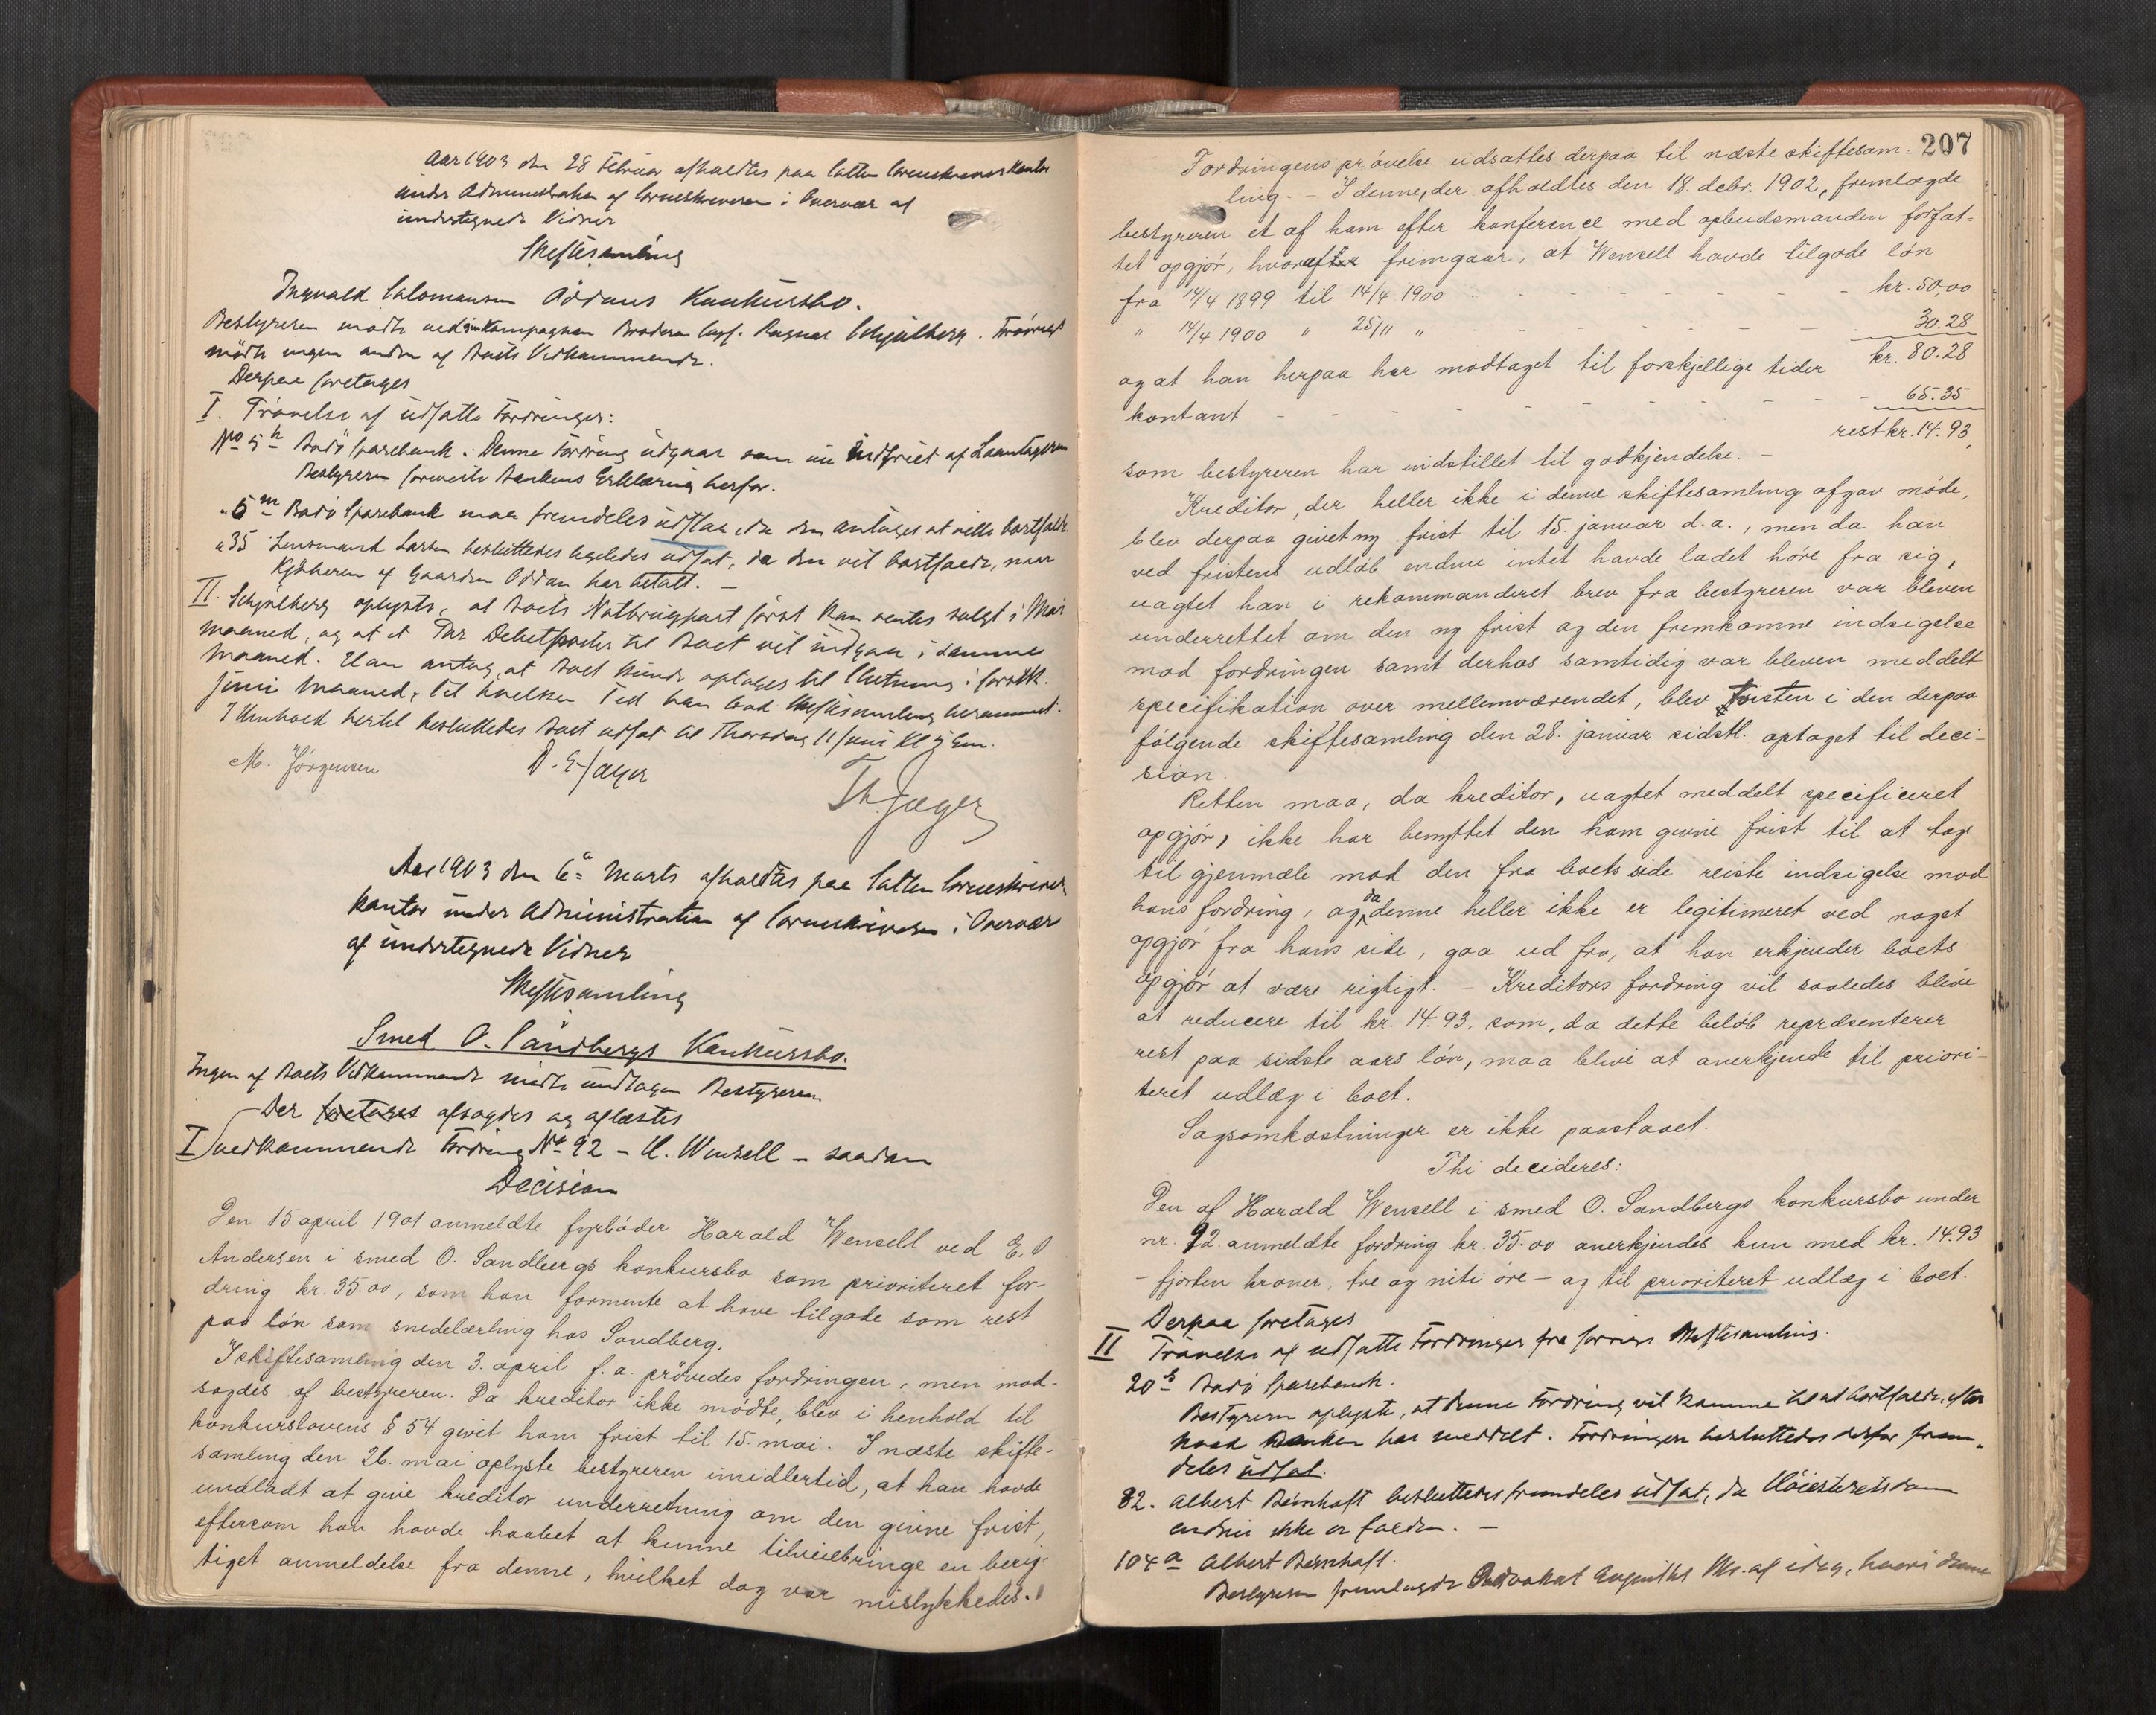 Aar 1903 den 28 Februar afholdtes paa Salten Sorenskriverkontor
under Administration af Sorenskriveren i Overvær af
undertegnede Vidner
Skiftesamling
Ingvald Salomonsen Oddans Konkursbo.
Bestyreren mødte ved sin Kompagnon Broderen Sagf. Ragnar Schjølberg. Forøvrigt
mødte ingen anden af Boets Vedkommende.
Derpaa foretages
I. Prøvelse af udsatte Fordringer:
No 5 h Bodø Sparebank. Denne Fordring udgaar som nu indfriet af Laantageren
Bestyreren foreviste Bankens Erklæring herfor.
" 5 m Bodø Sparebank maa fremdeles udstaa, da den antages at ville bortfalde.
" 35 Lensmand Larsen besluttedes ligeledes udsat, da den vil bortfalde, naar
Kjøberen af Gaarden Oddan har betalt. —
II. Schjølberg oplyste, at Boets Notbrugspart først kan ventes solgt i Mai
maaned, og at et Par Debetposter til Boet vil indgaa i samme
Maaned. Han antog, at Boet kunde optages til Slutning i første
Juni Maaned, til hvilken Tid han bad Skiftesamling berammet.
I Henhold hertil besluttedes Boet udsat til Thorsdag 11 Juni Kl 5 Em.
M. Jørgensen D. E. Jager
Th. Jæger
Aar 1903 den 6te Marts afholdtes paa Salten Sorenskriver
kontor under Administration af Sorenskriveren i Overvær
af undertegnede Vidner
Skiftesamling
Smed O. Sandbergs Konkursbo.
Ingen af Boets Vedkommende mødte undtagen Bestyreren
Der foretages afsagdes og aflæstes
I vedkommende Fordring No 92 – H. Wensell – saadan
Decision
Den 15 april 1901 anmeldte fyrbøder Harald Wensell ved E. O
Andersen i smed O. Sandbergs konkursbo som prioriteret for-
dring kr. 35.00, som han formente at have tilgode som rest
paa løn som smedelærling hos Sandberg.
I skiftesamling den 3. april f. a. prøvedes fordringen, men mod-
sagdes af bestyreren. Da kreditor ikke mødte, blev i henhold til
konkurslovens § 54 givet ham frist til 15. mai. I næste skifte-
samling den 26. mai oplyste bestyreren imidlertid, at han havde
undladt at give kreditor underretning om den givne frist,
eftersom han havde haabet at kunne tilveiebringe en berig-
tiget anmeldelse fra denne, hvilket dog var mislykkedes.
207
Fordringens prøvelse udsattes derpaa til næste skiftesam-
ling. – I denne, der afholdtes den 18. debr. 1902, fremlagde
bestyreren et af ham efter konference med opbudsmanden forfat-
tet opgjør, hvorefter fremgaar, at Wensell havde tilgode løn
fra 14/4 1899 til 14/4 1900 - - - - - - kr. 50,00
" 14/4 1900 " 25/11 " - - - - - - 30.28
kr. 80.28
og at han herpaa har modtaget til forskjellige tider
kontant - - - - - - - - - 65.35
rest kr. 14.93,
som bestyreren har indstillet til godkjendelse. –
Kreditor, der heller ikke i denne skiftesamling afgav møde,
blev derpaa givet ny frist til 15. januar d. a., men da han
ved fristens udløb endnu intet havde ladet høre fra sig,
uagtet han i rekommanderet brev fra bestyreren var bleven
underrettet om den ny frist og den fremkomne indsigelse
mod fordringen samt derhos samtidig var bleven meddelt
specifikation over mellemværendet, blev tvisten i den derpaa
følgende skiftesamling den 28. januar sidstl. optaget til deci-
sion.
Retten maa, da kreditor, uagtet meddelt specificeret
opgjør, ikke har benyttet den ham givne frist til at tage
til gjenmæle mod den fra boets side reiste indsigelse mod
hans fordring, og da denne heller ikke er legitimeret ved noget
opgjør fra hans side, gaa ud fra, at han erkjender boets
opgjør at være rigtigt. – Kreditors fordring vil saaledes blive
at reducere til kr. 14.93, som, da dette beløb repræsenterer
rest paa sidste aars løn, maa blive at anerkjende til priori-
teret udlæg i boet.
Sagsomkostninger er ikke paastaaet.
Thi decideres:
Den af Harald Wensell i smed O. Sandbergs konkursbo under
nr. 92 anmeldte fordring kr. 35.00 anerkjendes kun med kr. 14.93
– fjorten kroner, tre og niti øre – og til prioriteret udlæg i boet.
Derpaa foretages
II Prøvelse af udsatte Fordringer fra forrige Skiftesamling.
20 b Bodø Sparebank.
Bestyreren oplyste, at denne Fordring vil komme til at bortfalde, efter
hvad Banken har meddelt. Fordringen besluttedes derfor frem-
deles udsat.
82. Albert Beinhaft besluttedes fremdeles udsat, da Høiesteretsdom
endnu ikke er falden. —
104 a Albert Beinhaft.
Bestyreren fremlagde Advokat Skr. af idag, hvori denne